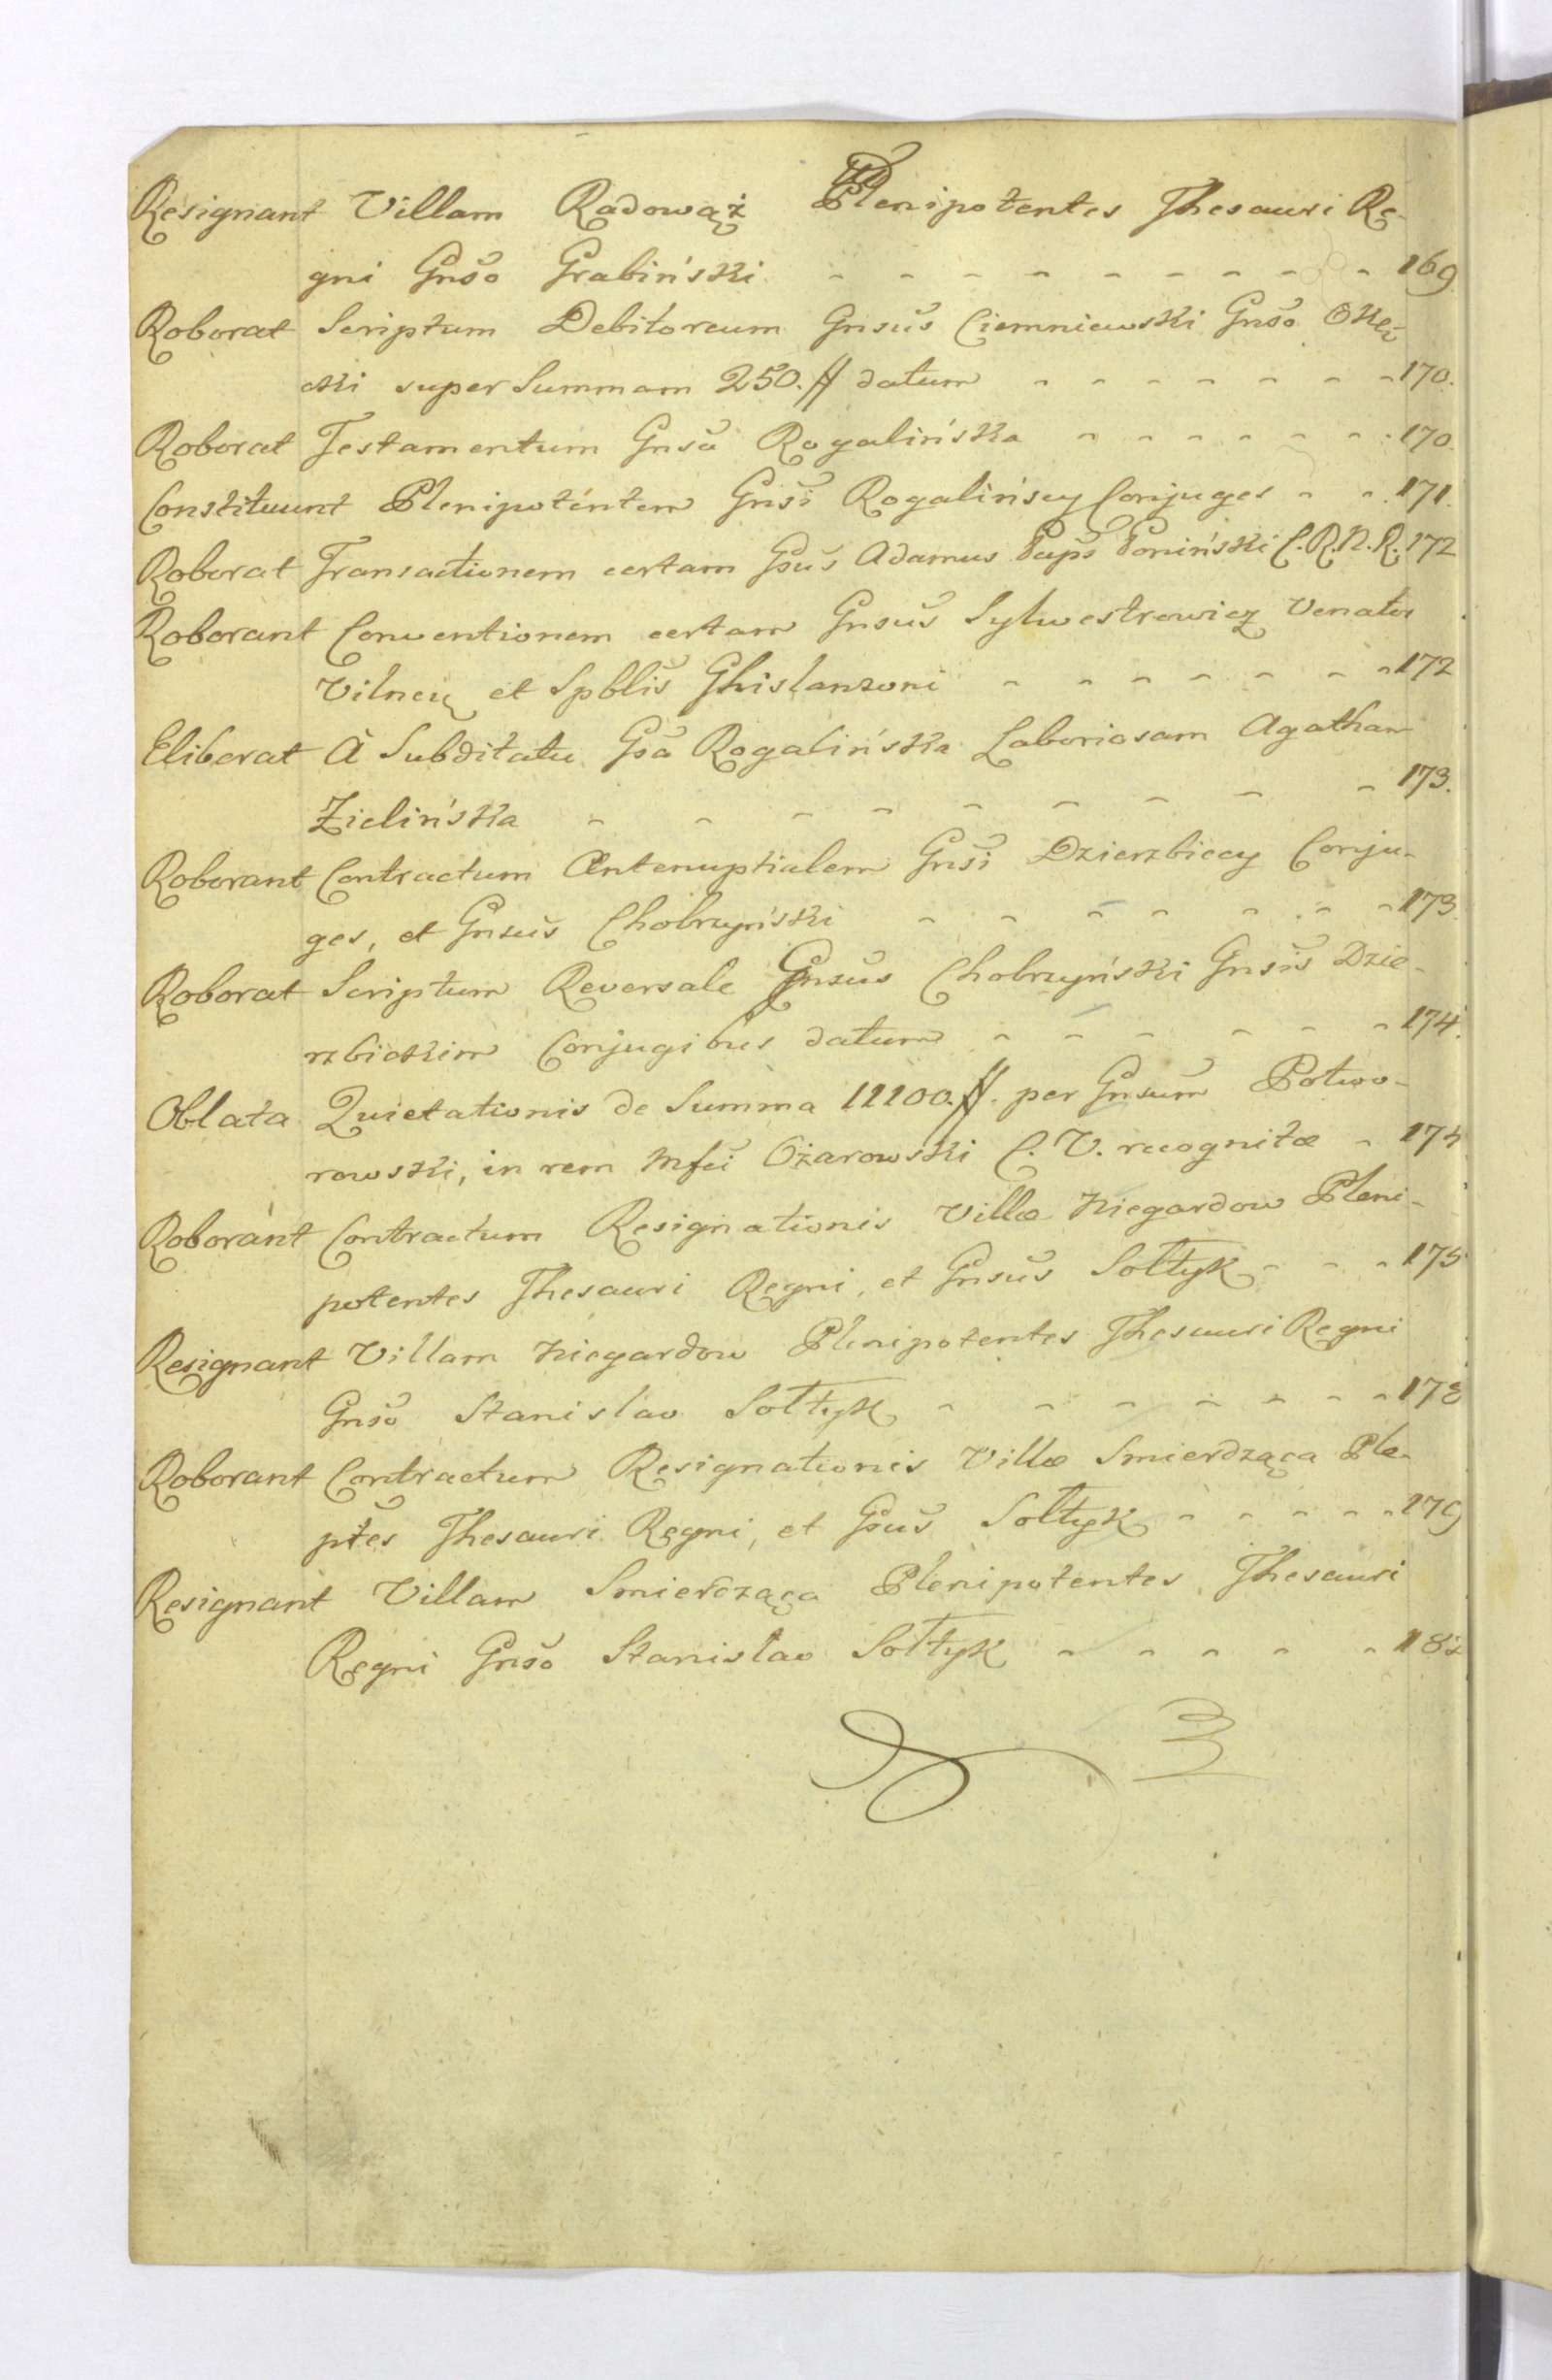 Resignant Villam Radowąż Plenipotentes Thesauri Re-
gni Gnso Grabiński - - - - - - - - - 169
Roborat Scriptum Debitoreum Gnsus Ciemniewski Gnso Okę-
cki super Summam 250. ff datum - - - - - - - 170.
Roborat Testamentum Gnsa Rogalińska - - - - - - 170.
Constituunt Plenipotentem Gnsi Rogalińscy Conjuges - - 171.
Roborat Transactionem certam Gsus Adamus Poniński C.R.N.R. 172
Roborant Conventionem certam Gnsus Sylwestrowicz Venator
Vilnen et Spblis Ghislanzoni - - - - - - - 172
Eliberat À Subditatu Gsa Rogalińska Laboriosam Agatham
Zielińska - - - - - - - - - 173.
Roborant Contractum Antenuptialem Gnsi Dzierzbiccy Conju-
ges, et Gnsus Chobrzyński - - - - - - - 173.
Roborat Scriptum Reversale Gnsus Chobrzyński Gnsis Dzie-
rzbickim Conjugibus datum - - - - - - 174.
Oblata Quietationis de Summa 11100. ff. per Gnsum Potwo-
rowski, in rem Mfci Ożarowski C. V. recognitæ - 174
Roborant Contractum Resignationis Villæ Niegardow Pleni-
potentes Thesauri Regni, et Gnsus Sołtyk - - - 175
Resignant Villam Niegardow Plenipotentes Thesauri Regni
Gnso Stanislao Sołtyk - - - - - - - 178
Roborant Contractum Resignationis Villæ Smierdząca Ple-
ptes Thesauri Regni, et Gsus Sołtyk - - - - - 179
Resignant Villam Smierdząca Plenipotentes Thesauri
Regni Gnso Stanislao Sołtyk - - - - - 182